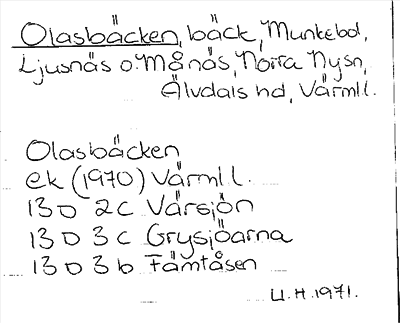 Olasbäcken, bäck, Munkebol,
Ljusnäs o. Månäs, Norra Nysn,
Älvdals hd, Värml.
Olasbäcken
ek (1970) Värml.
13D 2c Värsjön
13D 3c Grysjöarna
13D 3b Fämtåsen
U.H. 1971.